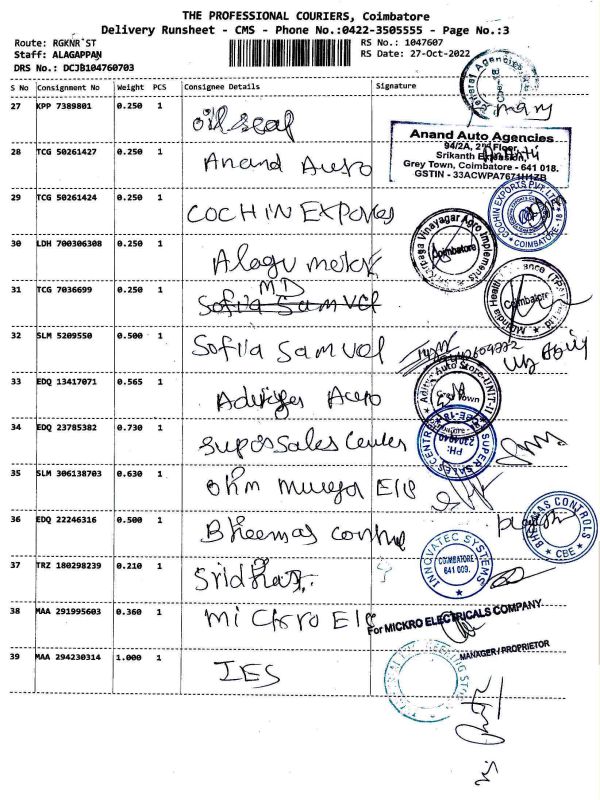 THE PROFESSIONAL COURIERS, Coimbatore
Delivery Runsheet - CMS - Phone No.:0422-3505555 - Page No.:3
Route: RGKNR ST
Staff: ALAGAPPAN
DRS No.: DCJB104760703
RS No.: 1047607
RS Date: 27-Oct-2022
S No Consignment No Weight PCS Consignee Details Signature
27 KPP 7389801 0.250 1 oil seal
28 TCG 50261427 0.250 1 Anand Auto
Anand Auto Agencies
94/2A, 2nd Floor,
Srikanth Extension,
Grey Town, Coimbatore - 641 018.
GSTIN - 33ACWPA7671H1ZB
29 TCG 50261424 0.250 1 COCHIN EXPORTS
COCHIN EXPORTS PVT LTD
COIMBATORE - 18
30 LDH 700306308 0.250 1 Alagu
Vinayagar Agro Implements
Coimbatore
31 TCG 7036699 0.250 1 MD
Sofila Samvel
Coimbatore
32 SLM 5209550 0.500 1 Sofila Samvel
33 EDQ 13417071 0.565 1 Auto
Auto Store-UNIT-II
34 EDQ 23785382 0.730 1 Super Sales Center
SUPER SALES CENTRE
PH:
35 SLM 306138703 0.630 1 Ohm Muruga Ele
36 EDQ 22246316 0.500 1 Bheemas control
BHEEMAS CONTROLS
CBE
37 TRZ 180298239 0.210 1 Sridhar
INNOVATEC SYSTEMS
COIMBATORE
641 009.
38 MAA 291995603 0.360 1 Mickro Ele
For MICKRO ELECTRICALS COMPANY
MANAGER / PROPRIETOR
39 MAA 294230314 1.000 1 IES